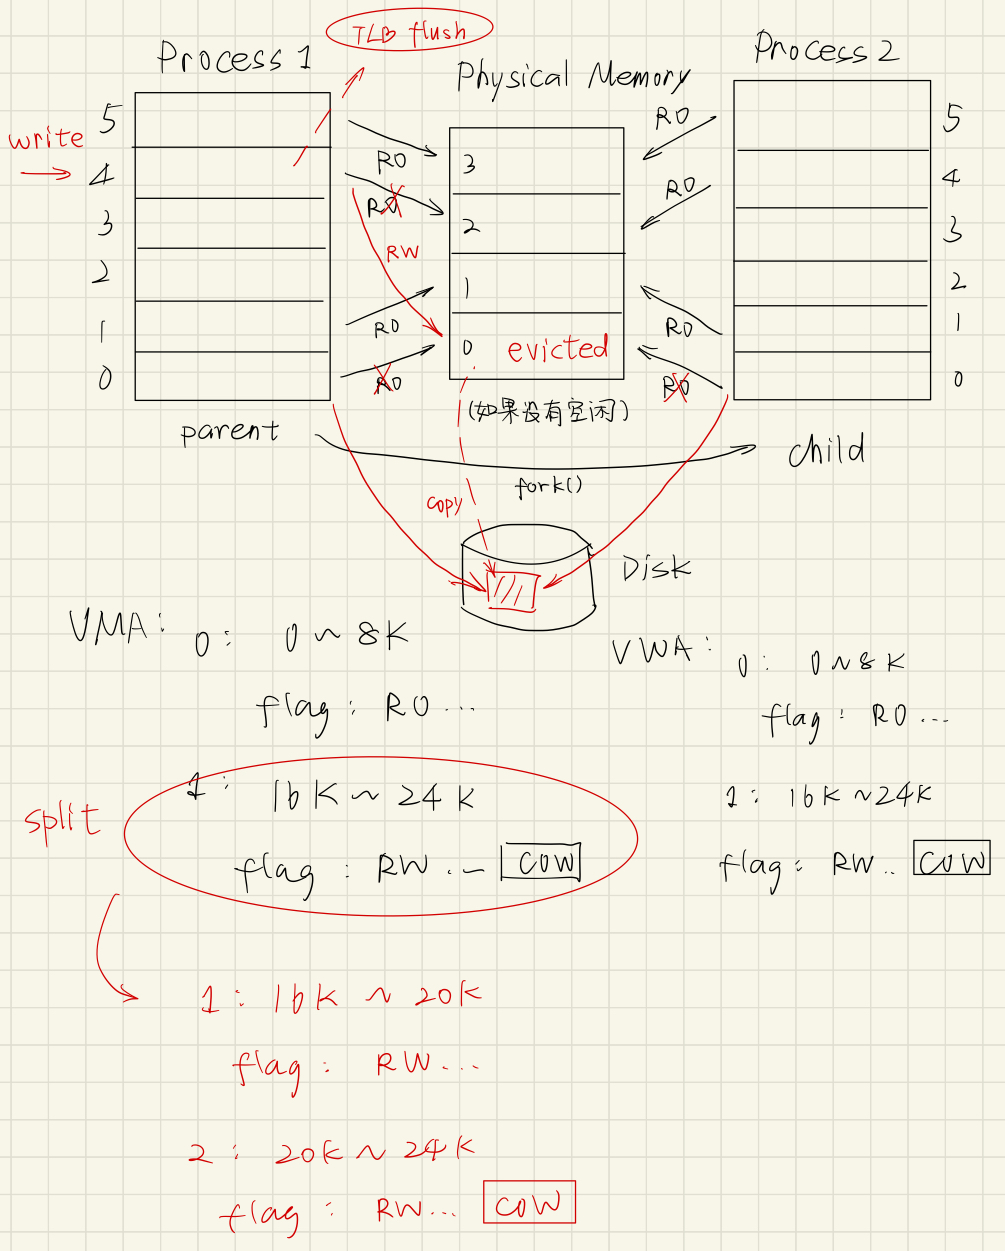 TLB flush
Process 1
Physical Memory
Process 2
5
4
3
2
1
0
write
RO
RO
RW
RO
RO
3
2
1
0 evicted
(如果没有空闲)
RO
RO
RO
RO
5
4
3
2
1
0
parent
child
fork()
copy
Disk
VMA: 0: 0~8K
flag: RO...
1: 16K~24K
flag: RW... COW
split
1: 16K~20K
flag: RW...
2: 20K~24K
flag: RW... COW
VWA: 0: 0~8K
flag: RO...
1: 16K~24K
flag: RW.. COW